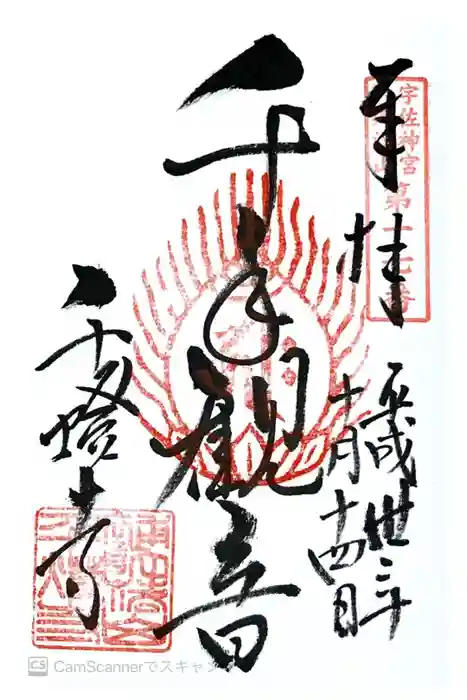 宇佐神宮
第十七番
奉拝
平成廿三年
十月十四日
千手觀音
千燈寺
CS CamScannerでスキャン